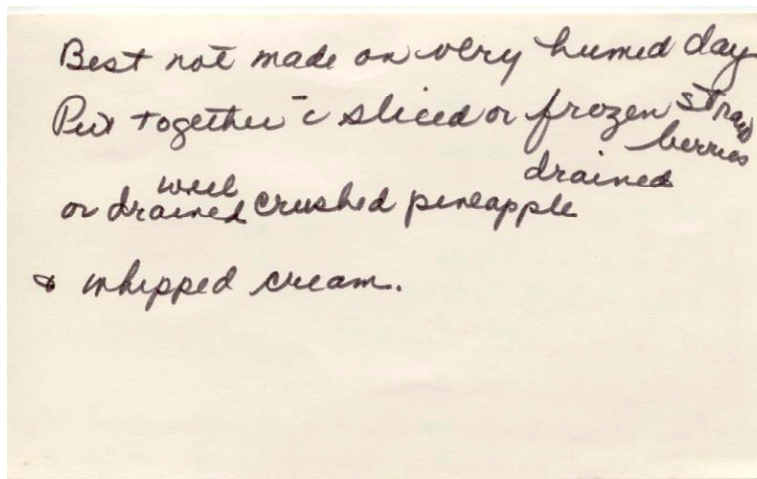 Best not made on very humid day
Put together c̄ sliced or frozen strawberries
drained
or well drained crushed pineapple
& whipped cream.